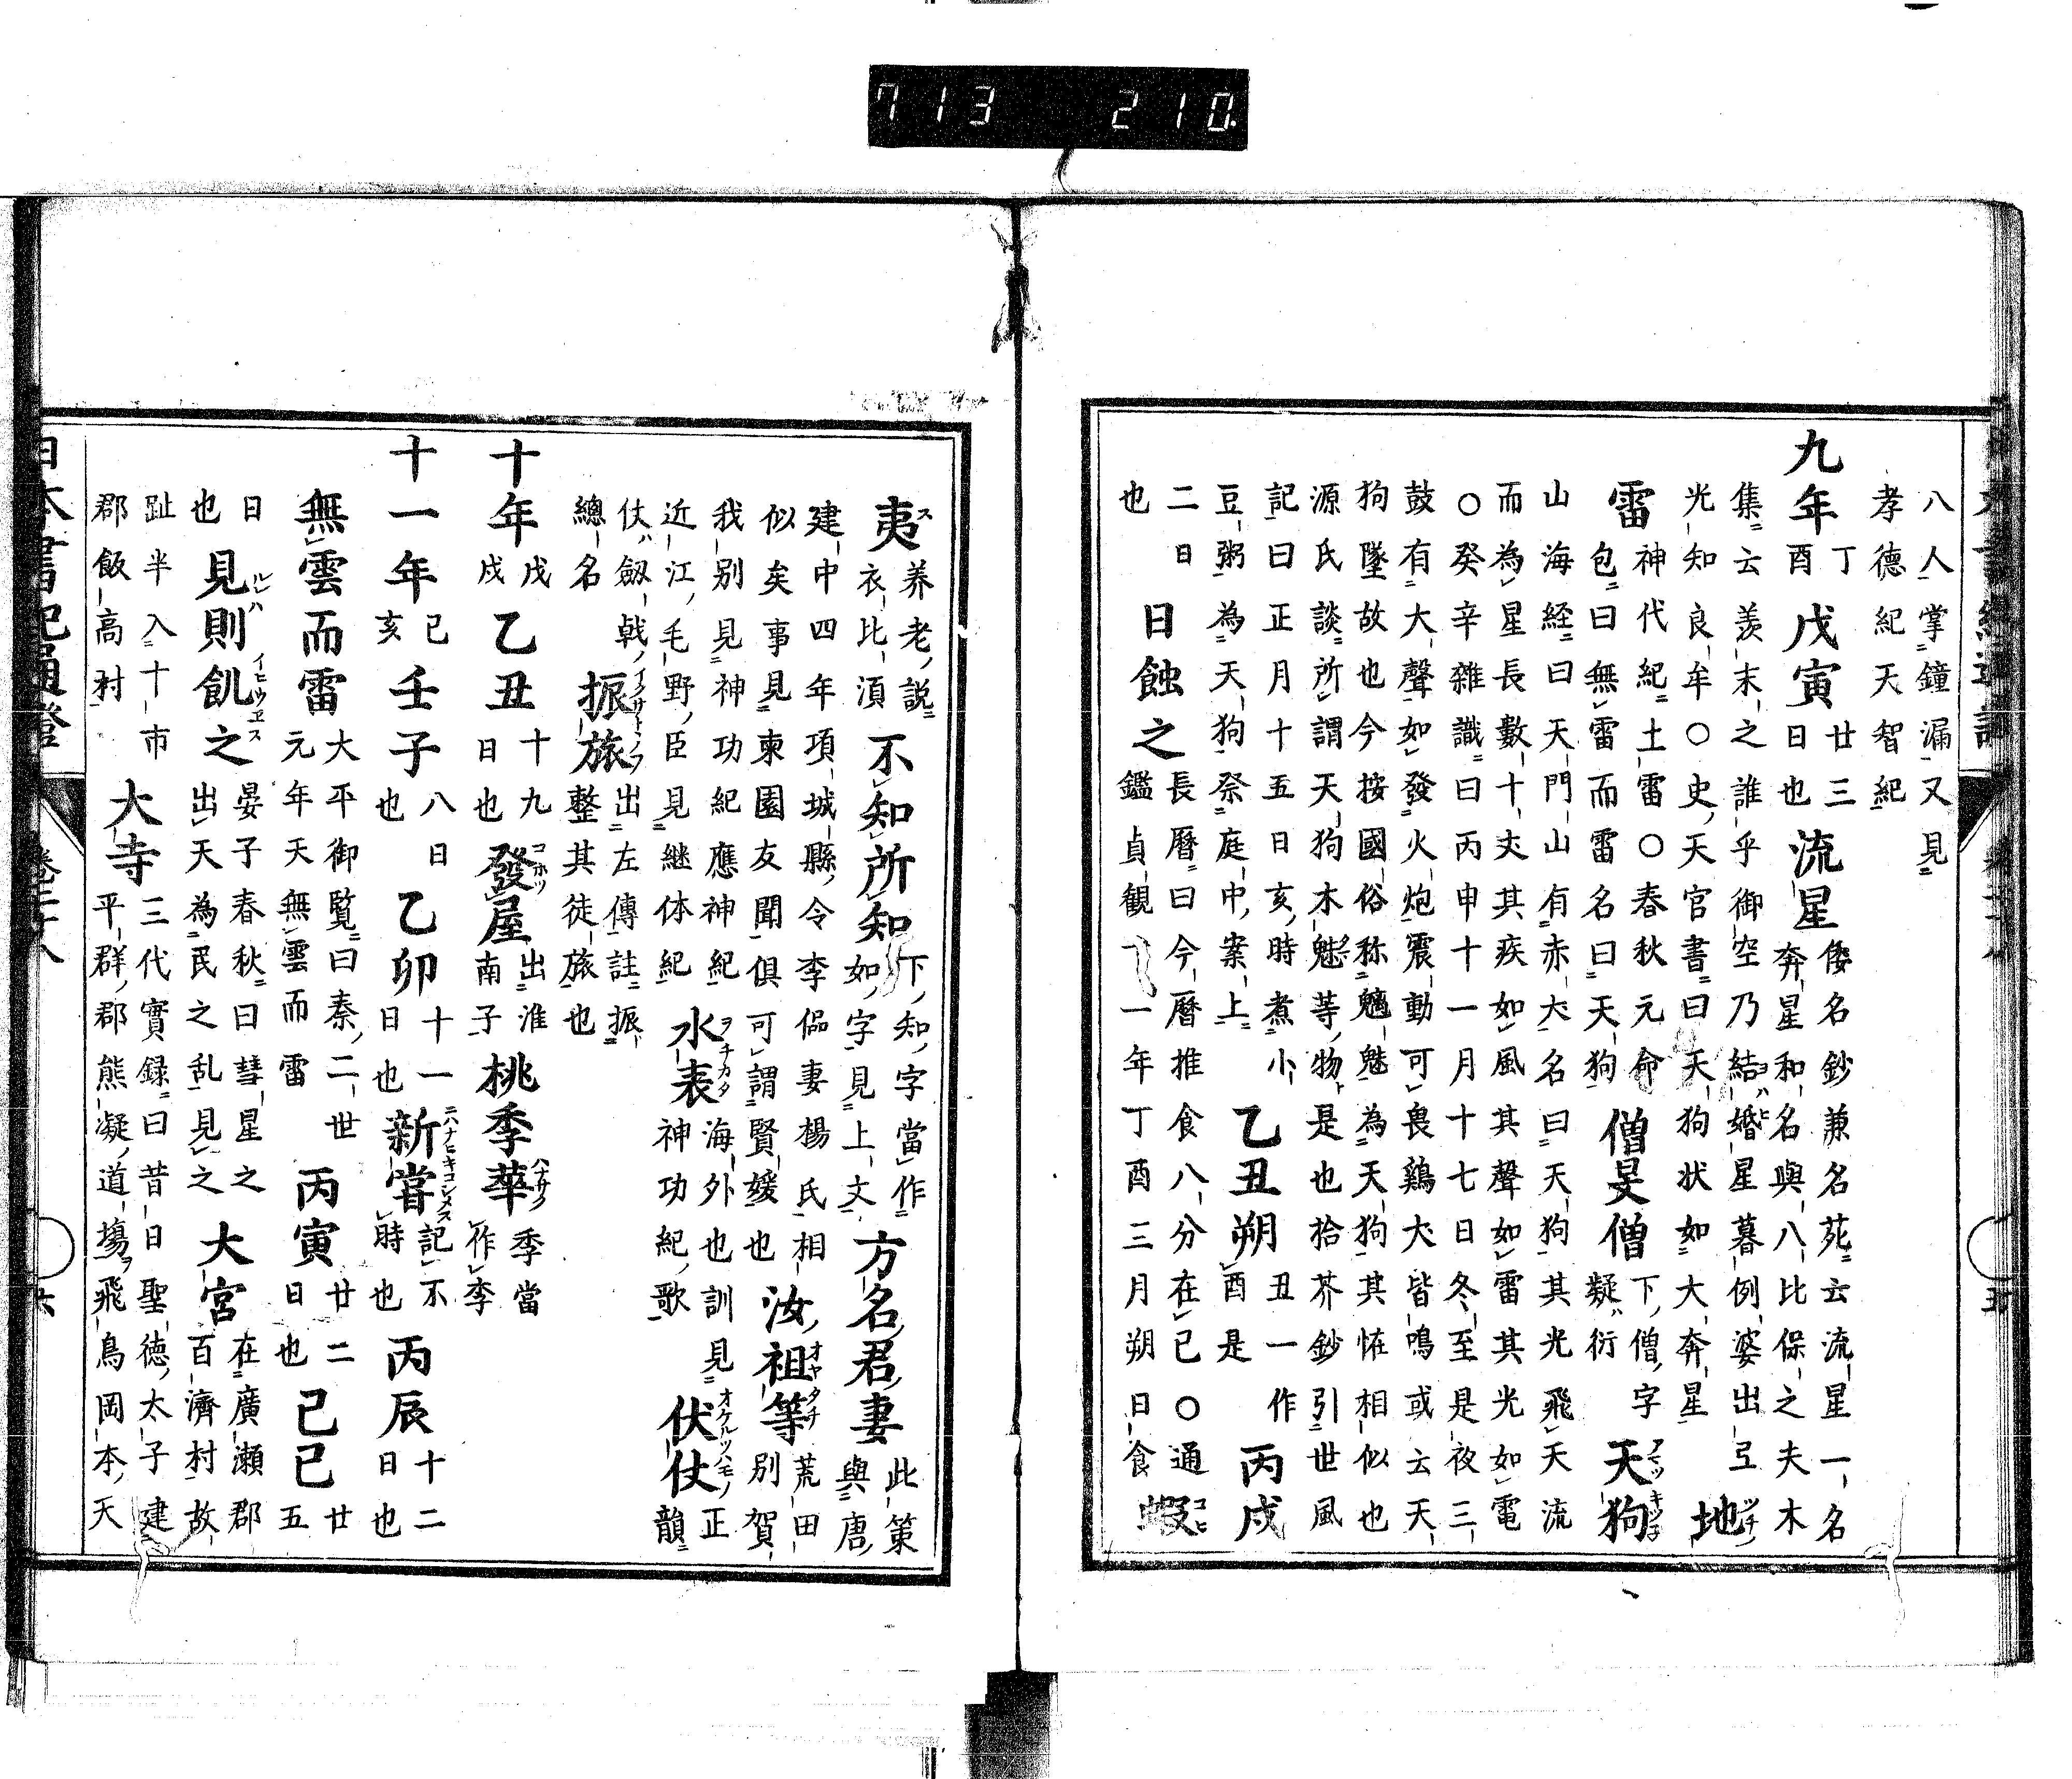 713 210
八人掌鐘漏又見
孝德紀天智紀
九年 丁酉 戊寅 廿三日也 流星 倭名鈔兼名苑云流星一名
奔星和名與八比保之夫木
集云羨末之誰乎御空乃結ヨハヒ婚星暮例婆出
光知良牟○史天官書曰天狗狀如大奔星 地ツチノ
雷 神代紀土雷○春秋元命
包曰無雷而雷名曰天狗 僧旻僧 下僧字疑衍 天狗アマツキツネ
山海経曰天門山有赤犬名曰天狗其光飛天流
而為星長數十丈其疾如風其聲如雷其光如電
○癸辛雜識曰丙申十一月十七日冬至是夜三
鼓有大聲如發火炮震動可畏鷄犬皆鳴或云天
狗墜故也今按國俗称魑魅為天狗其恠相似也
源氏談所謂天狗木魅等物是也拾芥鈔引世風
記曰正月十五日亥時煮小
豆粥為天狗祭庭中案上 乙丑朔 丑一作酉是 丙戌
二日也 日蝕之 長暦曰今暦推食八分在巳○通
鑑貞観十一年丁酉三月朔日食 蝦コヒ
夷ス 养老說衣比湏 不知所知 下知字當作如字見上文 方名君妻 此策與唐
建中四年項城縣令李偘妻楊氏相
似矣事見柬園友聞俱可謂賢媛也 汝祖等オヤタチ 荒田別賀
我別見神功紀應神紀
近江毛野臣見継体紀 水表ヲチカタ 海外也訓見神功紀歌 伏仗オケルツハモノ 正韻
仗劔戟總名 振旅イクサトヽノフ 出左傳註振整其徒旅也
十年 戊戌 乙丑 十九日也 發屋コホツ 出淮南子 桃季華ハナサク 季當作李
十一年 己亥 壬子 八日也 乙卯 十一日也 新甞ニハナヒキコシメス 記不時也 丙辰 十二日也
無雲而雷 大平御覧曰秦二世元年天無雲而雷 丙寅 廿二日也 己巳 廿五
日也 見則飢之 晏子春秋曰彗星之出天為民之乱見之 大宮 在廣瀬郡百濟村故
趾半入十市郡飯高村 大寺 三代實録曰昔日聖徳太子建
平群郡熊凝道場飛鳥岡本天
日本書紀通證 卷二十八 六